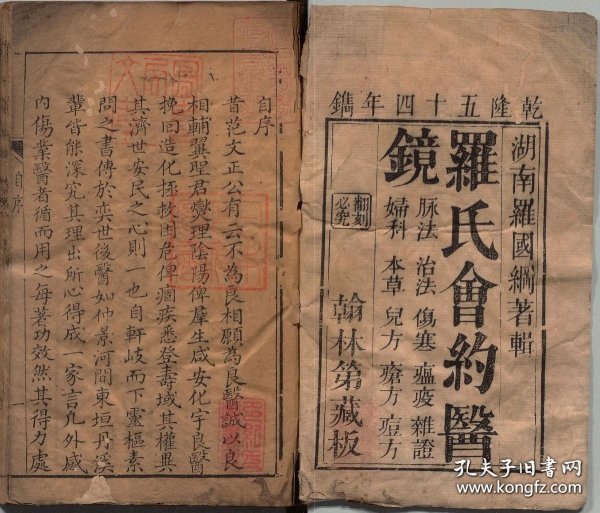 乾隆五十四年鐫
湖南羅國綱著輯
羅氏會約醫
鏡
脉法 治法 傷寒 瘟疫 雜證
婦科 本草 兒方 瘡方 痘方
翻刻
必究
翰林第藏板
自序
昔范文正公有云不為良相願為良醫誠以良
相輔翼聖君燮理陰陽俾羣生咸安化宇良醫
挽回造化拯救困危俾痼疾悉登壽域其權異
其濟世安民之心則一也自軒岐而下靈樞素
問之書傳於奕世後醫如仲景河間東垣丹溪
輩皆能深究其理出所心得成一家言凡外感
內傷業醫者循而用之每著功效然其得力處
自序
孔夫子旧书网
www.kongfz.com